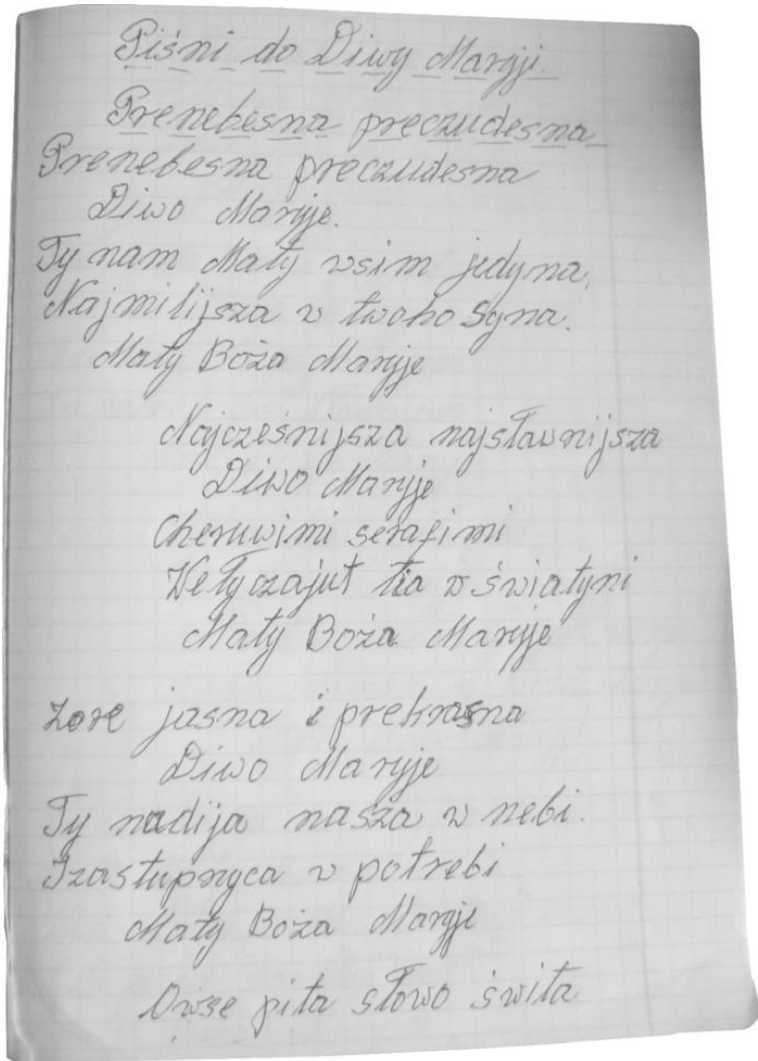 Piśni do Diwy Maryji
Prenebesna preczudesna
Prenebesna preczudesna
Diwo Maryje.
Ty nam Maty wsim jedyna,
Najmilijsza w twoho Syna.
Maty Boża Maryje
Najcześnijsza najsławnijsza
Diwo Maryje
Cheruwimi serafimi
Wełyczajut tia w światyni
Maty Boża Maryje
Zore jasna i prekrasna
Diwo Maryje
Ty nadija nasza w nebi.
Izastupnyca w potrebi
Maty Boża Maryje
Owse pita słowo świta